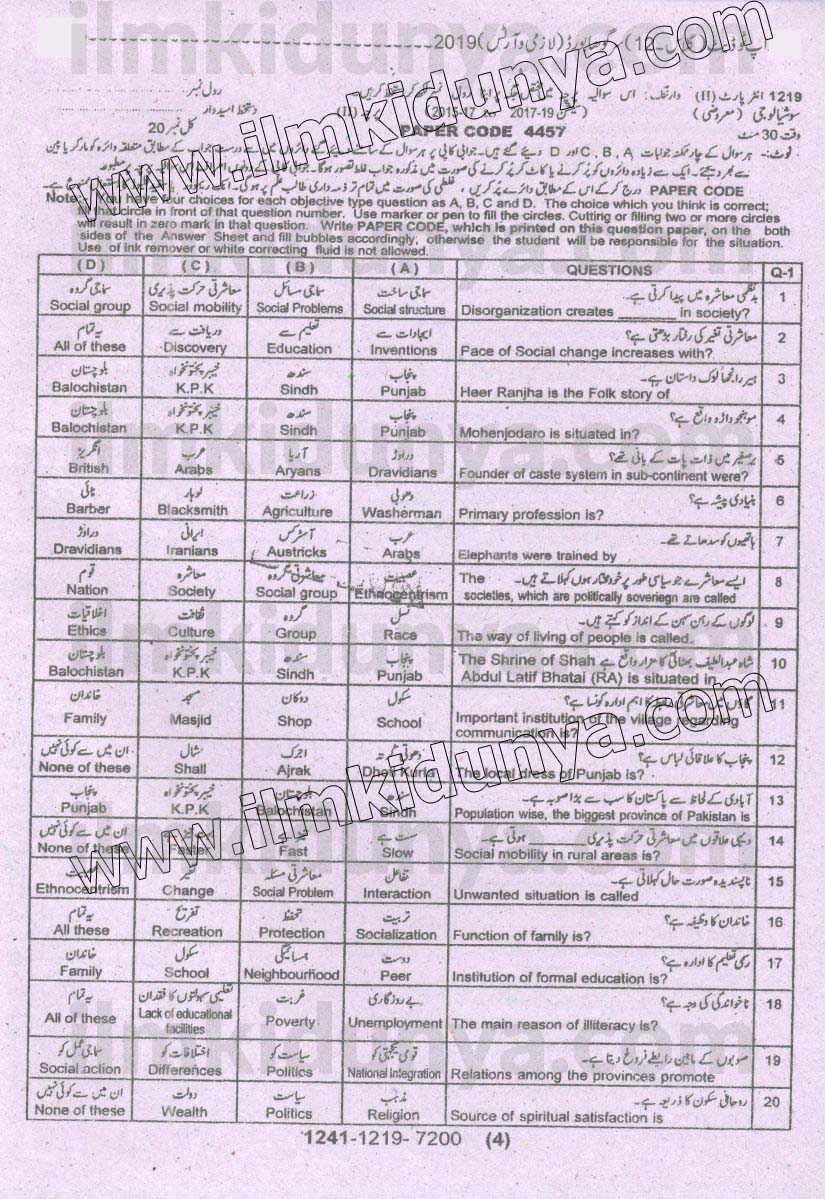 اپ ٹوڈیٹ (کلاس-12) سرگودھا بورڈ (لازمی و آرٹس) 2019
1219 انٹر پارٹ (II)
رول نمبر
سوشیالوجی (معروضی)
دستخط امیدوار
وقت 30 منٹ PAPER CODE 4457 کل نمبر 20
PAPER CODE
Note: You have four choices for each objective type question as A, B, C and D. The choice which you think is correct;
fill that circle in front of that question number. Use marker or pen to fill the circles. Cutting or filling two or more circles
will result in zero mark in that question. Write PAPER CODE, which is printed on this question paper, on the both
sides of the Answer Sheet and fill bubbles accordingly, otherwise the student will be responsible for the situation.
Use of ink remover or white correcting fluid is not allowed.
(D) (C) (B) (A) QUESTIONS Q-1
سماجی گروہ معاشرتی حرکت پذیری سماجی مسائل سماجی ساخت بدنظمی معاشرہ میں پیدا کرتی ہے۔ 1
Social group Social mobility Social Problems Social structure Disorganization creates ________ in society?
یہ تمام دریافت سے تعلیم سے ایجادات سے معاشرتی تغیر کی رفتار بڑھتی ہے؟ 2
All of these Discovery Education Inventions Pace of Social change increases with?
بلوچستان خیبر پختونخواہ سندھ پنجاب ہیر رانجھا لوک داستان ہے۔ 3
Balochistan K.P.K Sindh Punjab Heer Ranjha is the Folk story of
بلوچستان خیبر پختونخواہ سندھ پنجاب موہنجوداڑو واقع ہے؟ 4
Balochistan K.P.K Sindh Punjab Mohenjodaro is situated in?
انگریز عرب آریا دراوڑ برصغیر میں ذات پات کے بانی تھے؟ 5
British Arabs Aryans Dravidians Founder of caste system in sub-continent were?
نائی لوہار زراعت دھوبی بنیادی پیشہ ہے؟ 6
Barber Blacksmith Agriculture Washerman Primary profession is?
دراوڑ ایرانی آسٹرکس عرب ہاتھیوں کو سدھاتے تھے۔ 7
Dravidians Iranians Austricks Arabs Elephants were trained by
قوم معاشرہ معاشرتی گروہ عصبیت ایسے معاشرے جو سیاسی طور پر خودمختار ہوں کہلاتے ہیں۔ The 8
Nation Society Social group Ethnocentrism societies, which are politically soveriegn are called
اخلاقیات ثقافت گروہ نسل لوگوں کے رہن سہن کے انداز کو کہتے ہیں۔ 9
Ethics Culture Group Race The way of living of people is called.
بلوچستان خیبر پختونخواہ سندھ پنجاب شاہ عبداللطیف بھٹائی کا مزار واقع ہے The Shrine of Shah 10
Balochistan K.P.K Sindh Punjab Abdul Latif Bhatai (RA) is situated in
خاندان مسجد دوکان سکول 11
Family Masjid Shop School Important institution of the village regarding
communication is?
ان میں سے کوئی نہیں شال اجرک دھوتی کرتہ پنجاب کا علاقائی لباس ہے؟ 12
None of these Shall Ajrak Dhoti Kurta The local dress of Punjab is?
پنجاب خیبر پختونخواہ بلوچستان سندھ آبادی کے لحاظ سے پاکستان کا سب سے بڑا صوبہ ہے۔ 13
Punjab K.P.K Balochistan Sindh Population wise, the biggest province of Pakistan is
ان میں سے کوئی نہیں سست ہے دیہی علاقوں میں معاشرتی حرکت پذیری ________ ہوتی ہے۔ 14
None of these Faster Fast Slow Social mobility in rural areas is?
تغیر معاشرتی مسئلہ تفاعل ناپسندیدہ صورت حال کہلاتی ہے۔ 15
Ethnocentrism Change Social Problem Interaction Unwanted situation is called
یہ تمام تفریح تحفظ تربیت خاندان کا وظیفہ ہے؟ 16
All these Recreation Protection Socialization Function of family is?
خاندان سکول ہمسائیگی دوست رسمی تعلیم کا ادارہ ہے؟ 17
Family School Neighbourhood Peer Institution of formal education is?
یہ تمام تعلیمی سہولتوں کا فقدان غربت بے روزگاری ناخواندگی کی وجہ ہے؟ 18
All of these Lack of educational facilities Poverty Unemployment The main reason of illiteracy is?
سماجی عمل کو اختلافات کو سیاست کو قومی یکجہتی کو صوبوں کے مابین رابطے فروغ دیتا ہے۔ 19
Social action Differences Politics National Integration Relations among the provinces promote
ان میں سے کوئی نہیں دولت سیاست مذہب روحانی سکون کا ذریعہ ہے۔ 20
None of these Wealth Politics Religion Source of spiritual satisfaction is
1241-1219- 7200 (4)
www.ilmkidunya.com
www.ilmkidunya.com
ilmkidunya.com